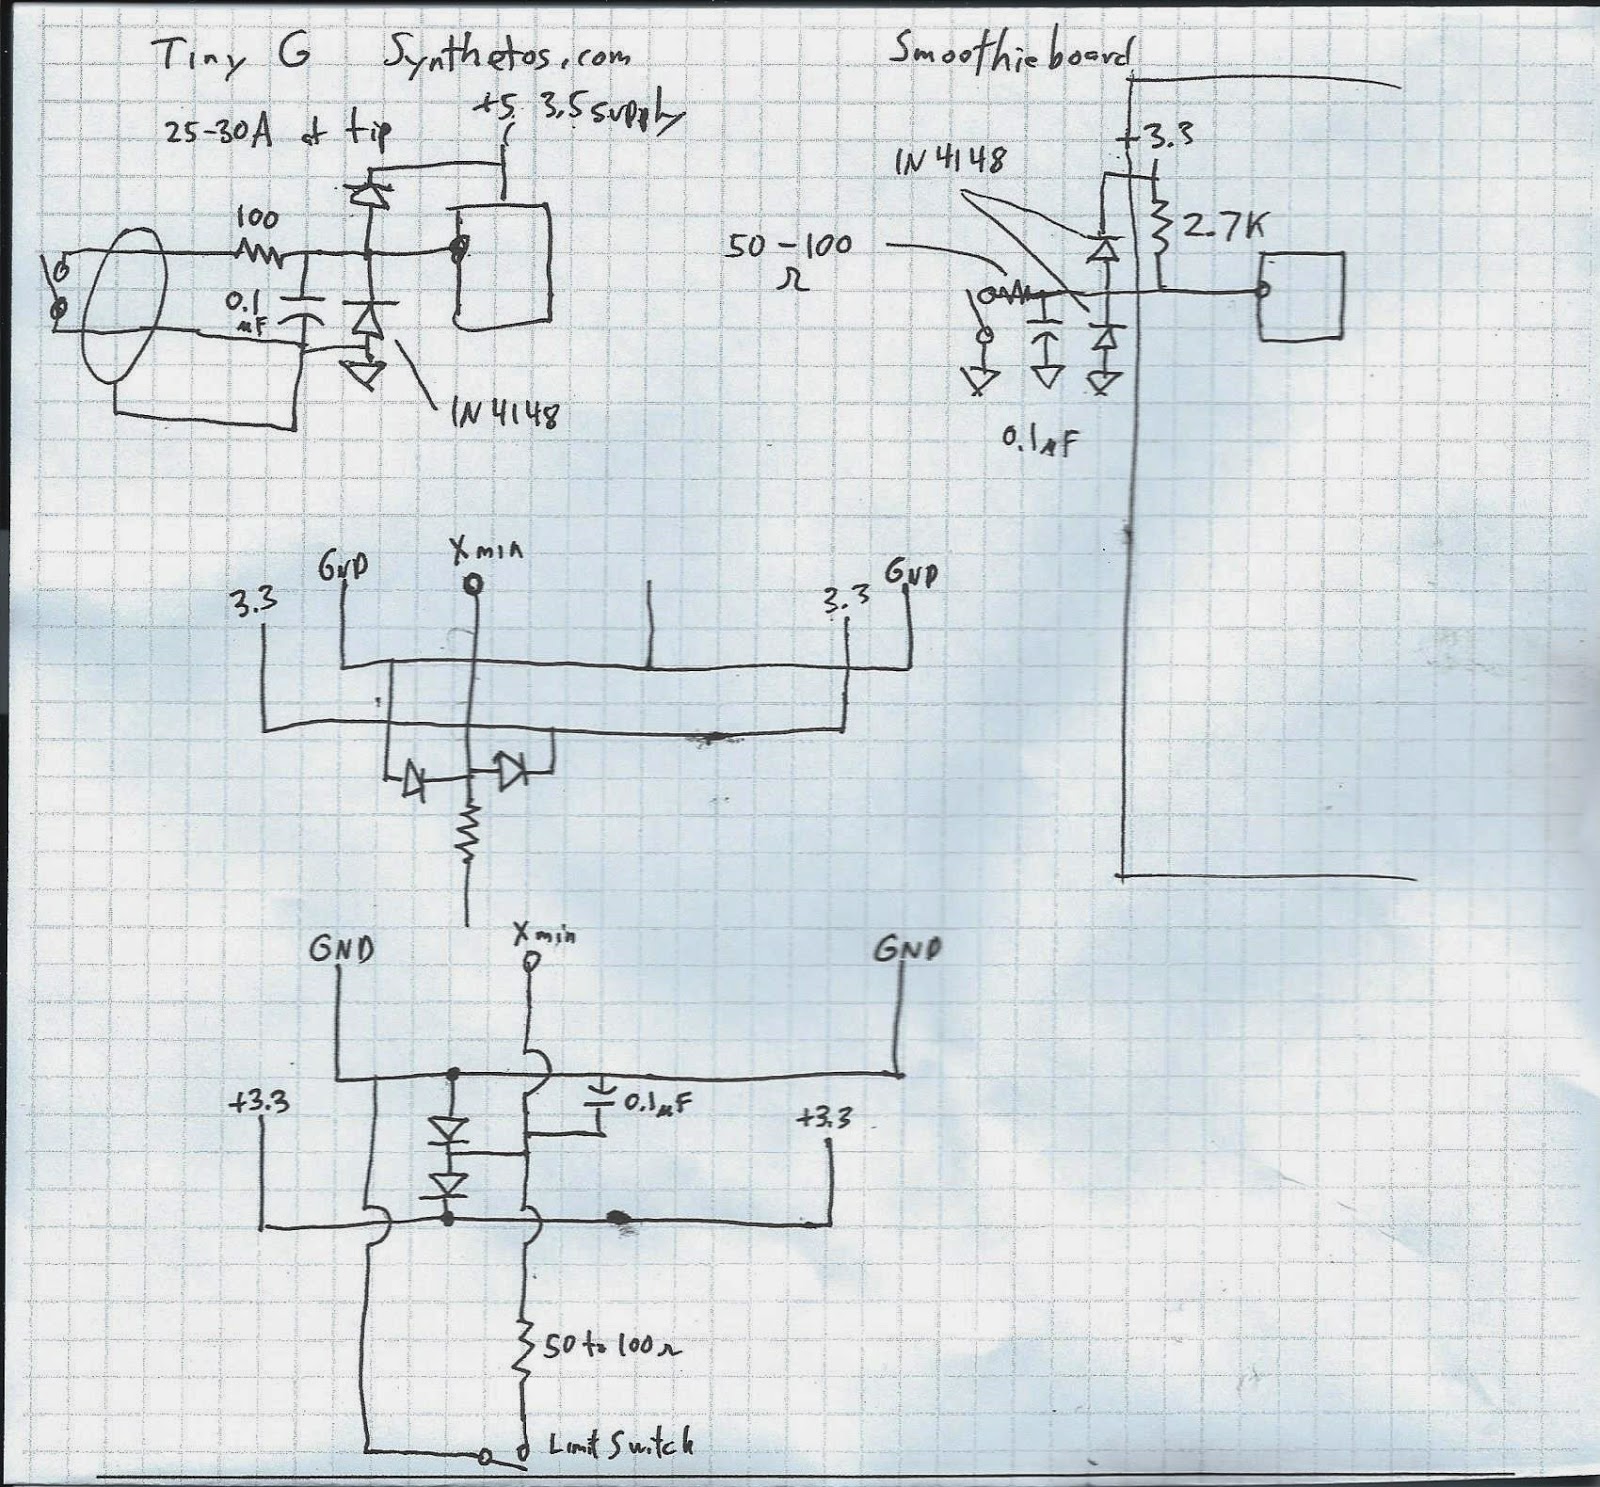 Tiny G Synthetos.com
25-30A at tip
+5 3.5 supply
100
0.1
µF
IN 4148
Smoothieboard
+3.3
IN 4148
2.7K
50-100
Ω
0.1µF
3.3
GND
Xmin
3.3
GND
GND
Xmin
GND
+3.3
0.1µF
+3.3
50 to 100Ω
Limit Switch